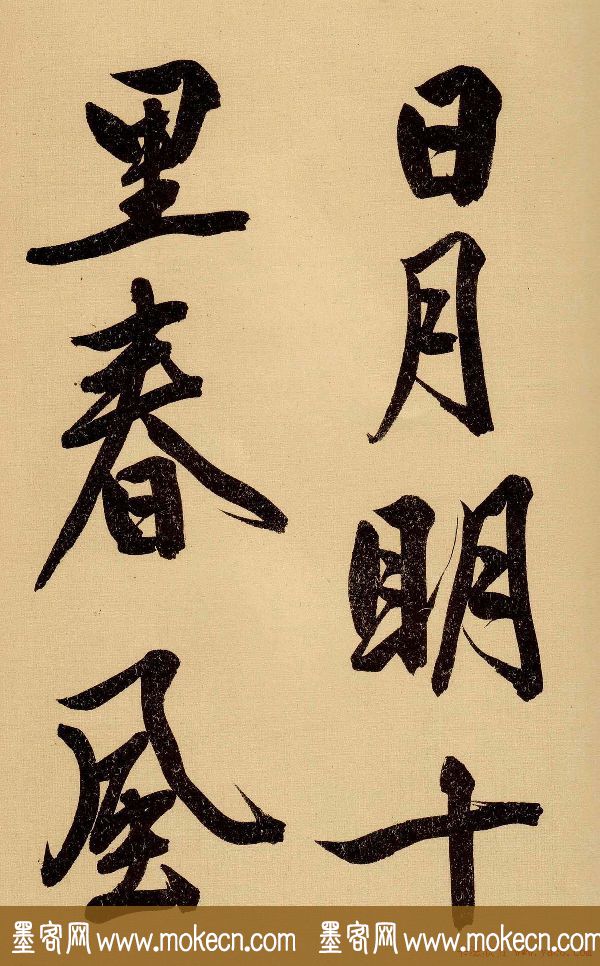 日月明十
里春风
墨客网 www.mokecn.com 墨客网 www.mokecn.com